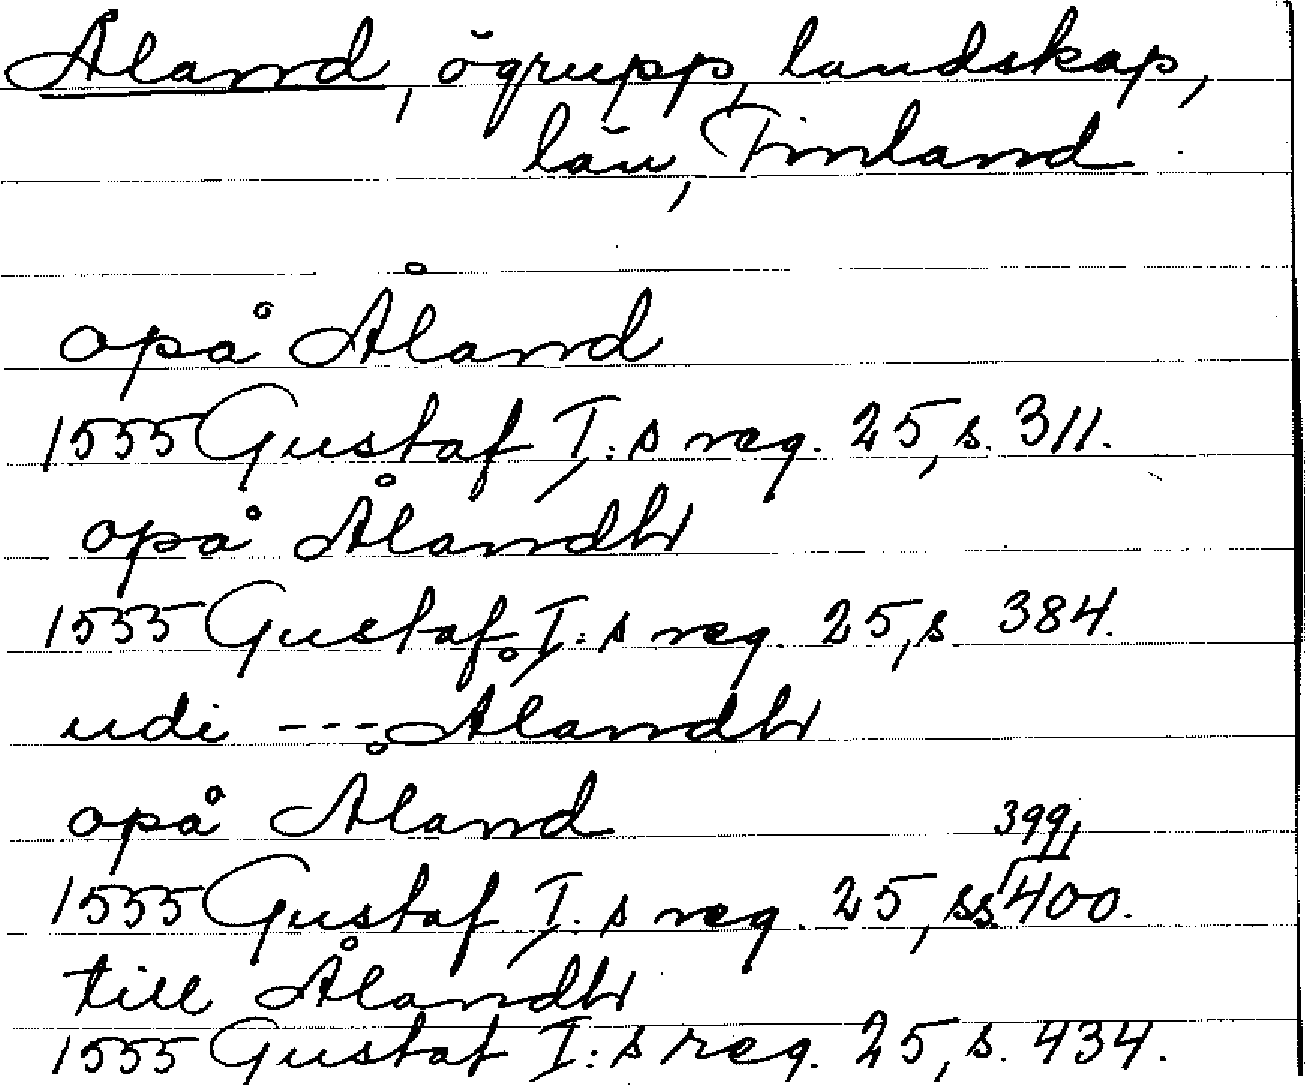 Åland, ögrupp, landskap,
län, Finland
opå Åland
1555 Gustaf I:s reg. 25, s. 311.
opå Ålandh
1555 Gustaf I:s reg. 25, s. 384.
udi --- Ålandh
opå Åland
399,
1555 Gustaf I:s reg. 25, ss. 400.
till Ålandh
1555 Gustaf I:s reg. 25, s. 434.